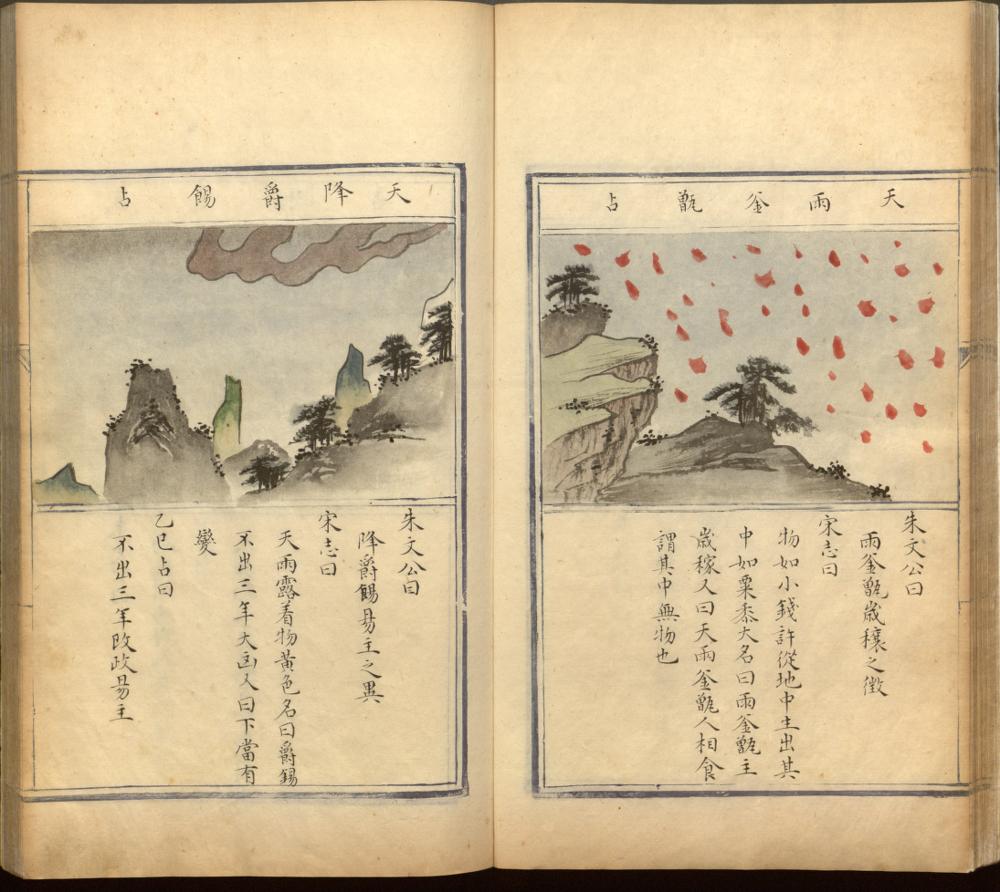 天雨釜甑占
朱文公曰
雨釜甑歲穰之徵
宋志曰
物如小錢許從地中生出其
中如粟黍大名曰雨釜甑主
歲稼又曰天雨釜甑人相食
謂其中無物也
天降爵餳占
朱文公曰
降爵餳易主之異
宋志曰
天雨露着物黃色名曰爵錫
不出三年大凶又曰下當有
變
乙巳占曰
不出三年改政易主